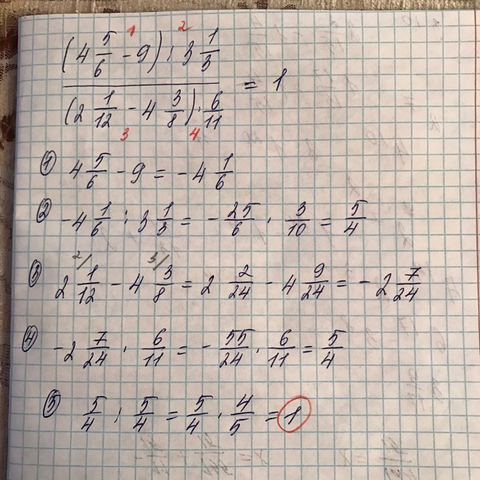 1 2
(4 5/6 - 9) : 3 1/3
= 1
(2 1/12 - 4 3/8) · 6/11
3 4
① 4 5/6 - 9 = -4 1/6
② -4 1/6 : 3 1/3 = - 25/6 · 3/10 = 5/4
2/ 3/
③ 2 1/12 - 4 3/8 = 2 2/24 - 4 9/24 = - 2 7/24
④ -2 7/24 · 6/11 = - 55/24 · 6/11 = 5/4
⑤ 5/4 : 5/4 = 5/4 · 4/5 = 1